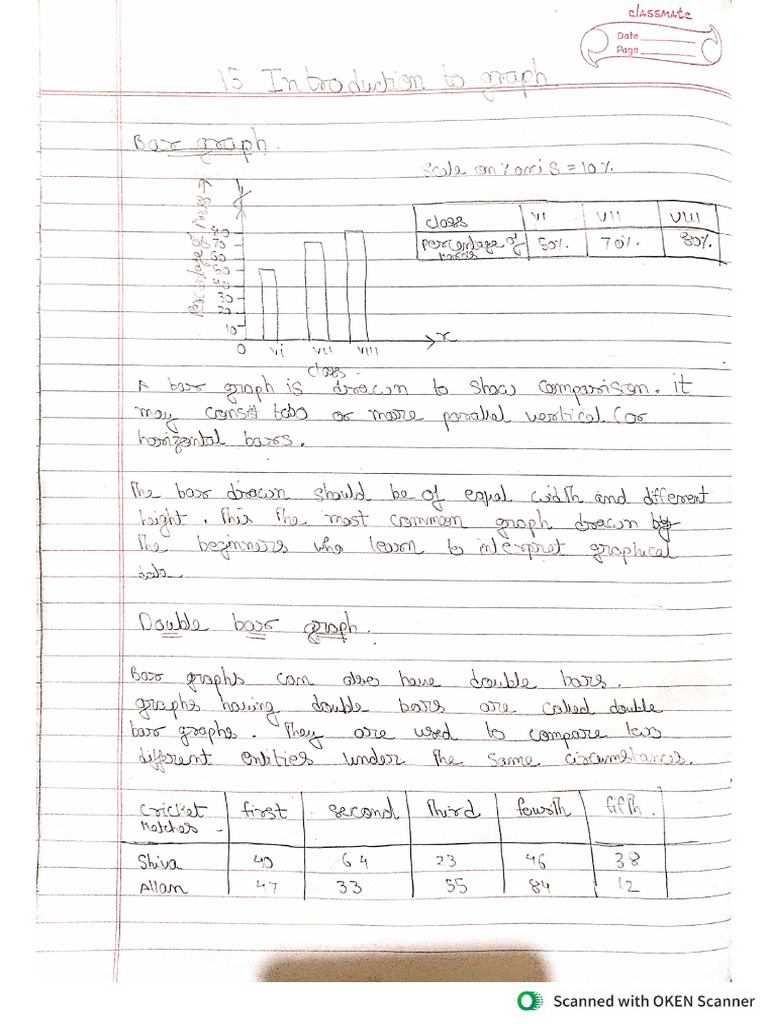 classmate
Date
Page
15 Introduction to graph
Bar graph.
Scale on Y axis = 10%.
Percentage of →
80
70
60
50
40
30
20
10
0
VI VII VIII
x
class
class VI VII VIII
percentage of marks 50%. 70%. 80%.
A bar graph is drawn to show comparison. it
may consit two or more parallel vertical (or
horizontal bars.
The bar drawn should be of equal width and different
height. This the most common graph drawn by
the beginners who learn to interpret graphical
data.
Double bar graph.
Bar graphs can also have double bars.
graphs having double bars are called double
bar graphs. They are used to compare two
different entities under the same circumstances.
Cricket Matches first second third fourth fifth.
Shiva 40 64 23 46 38
Allam 47 33 55 84 12
Scanned with OKEN Scanner